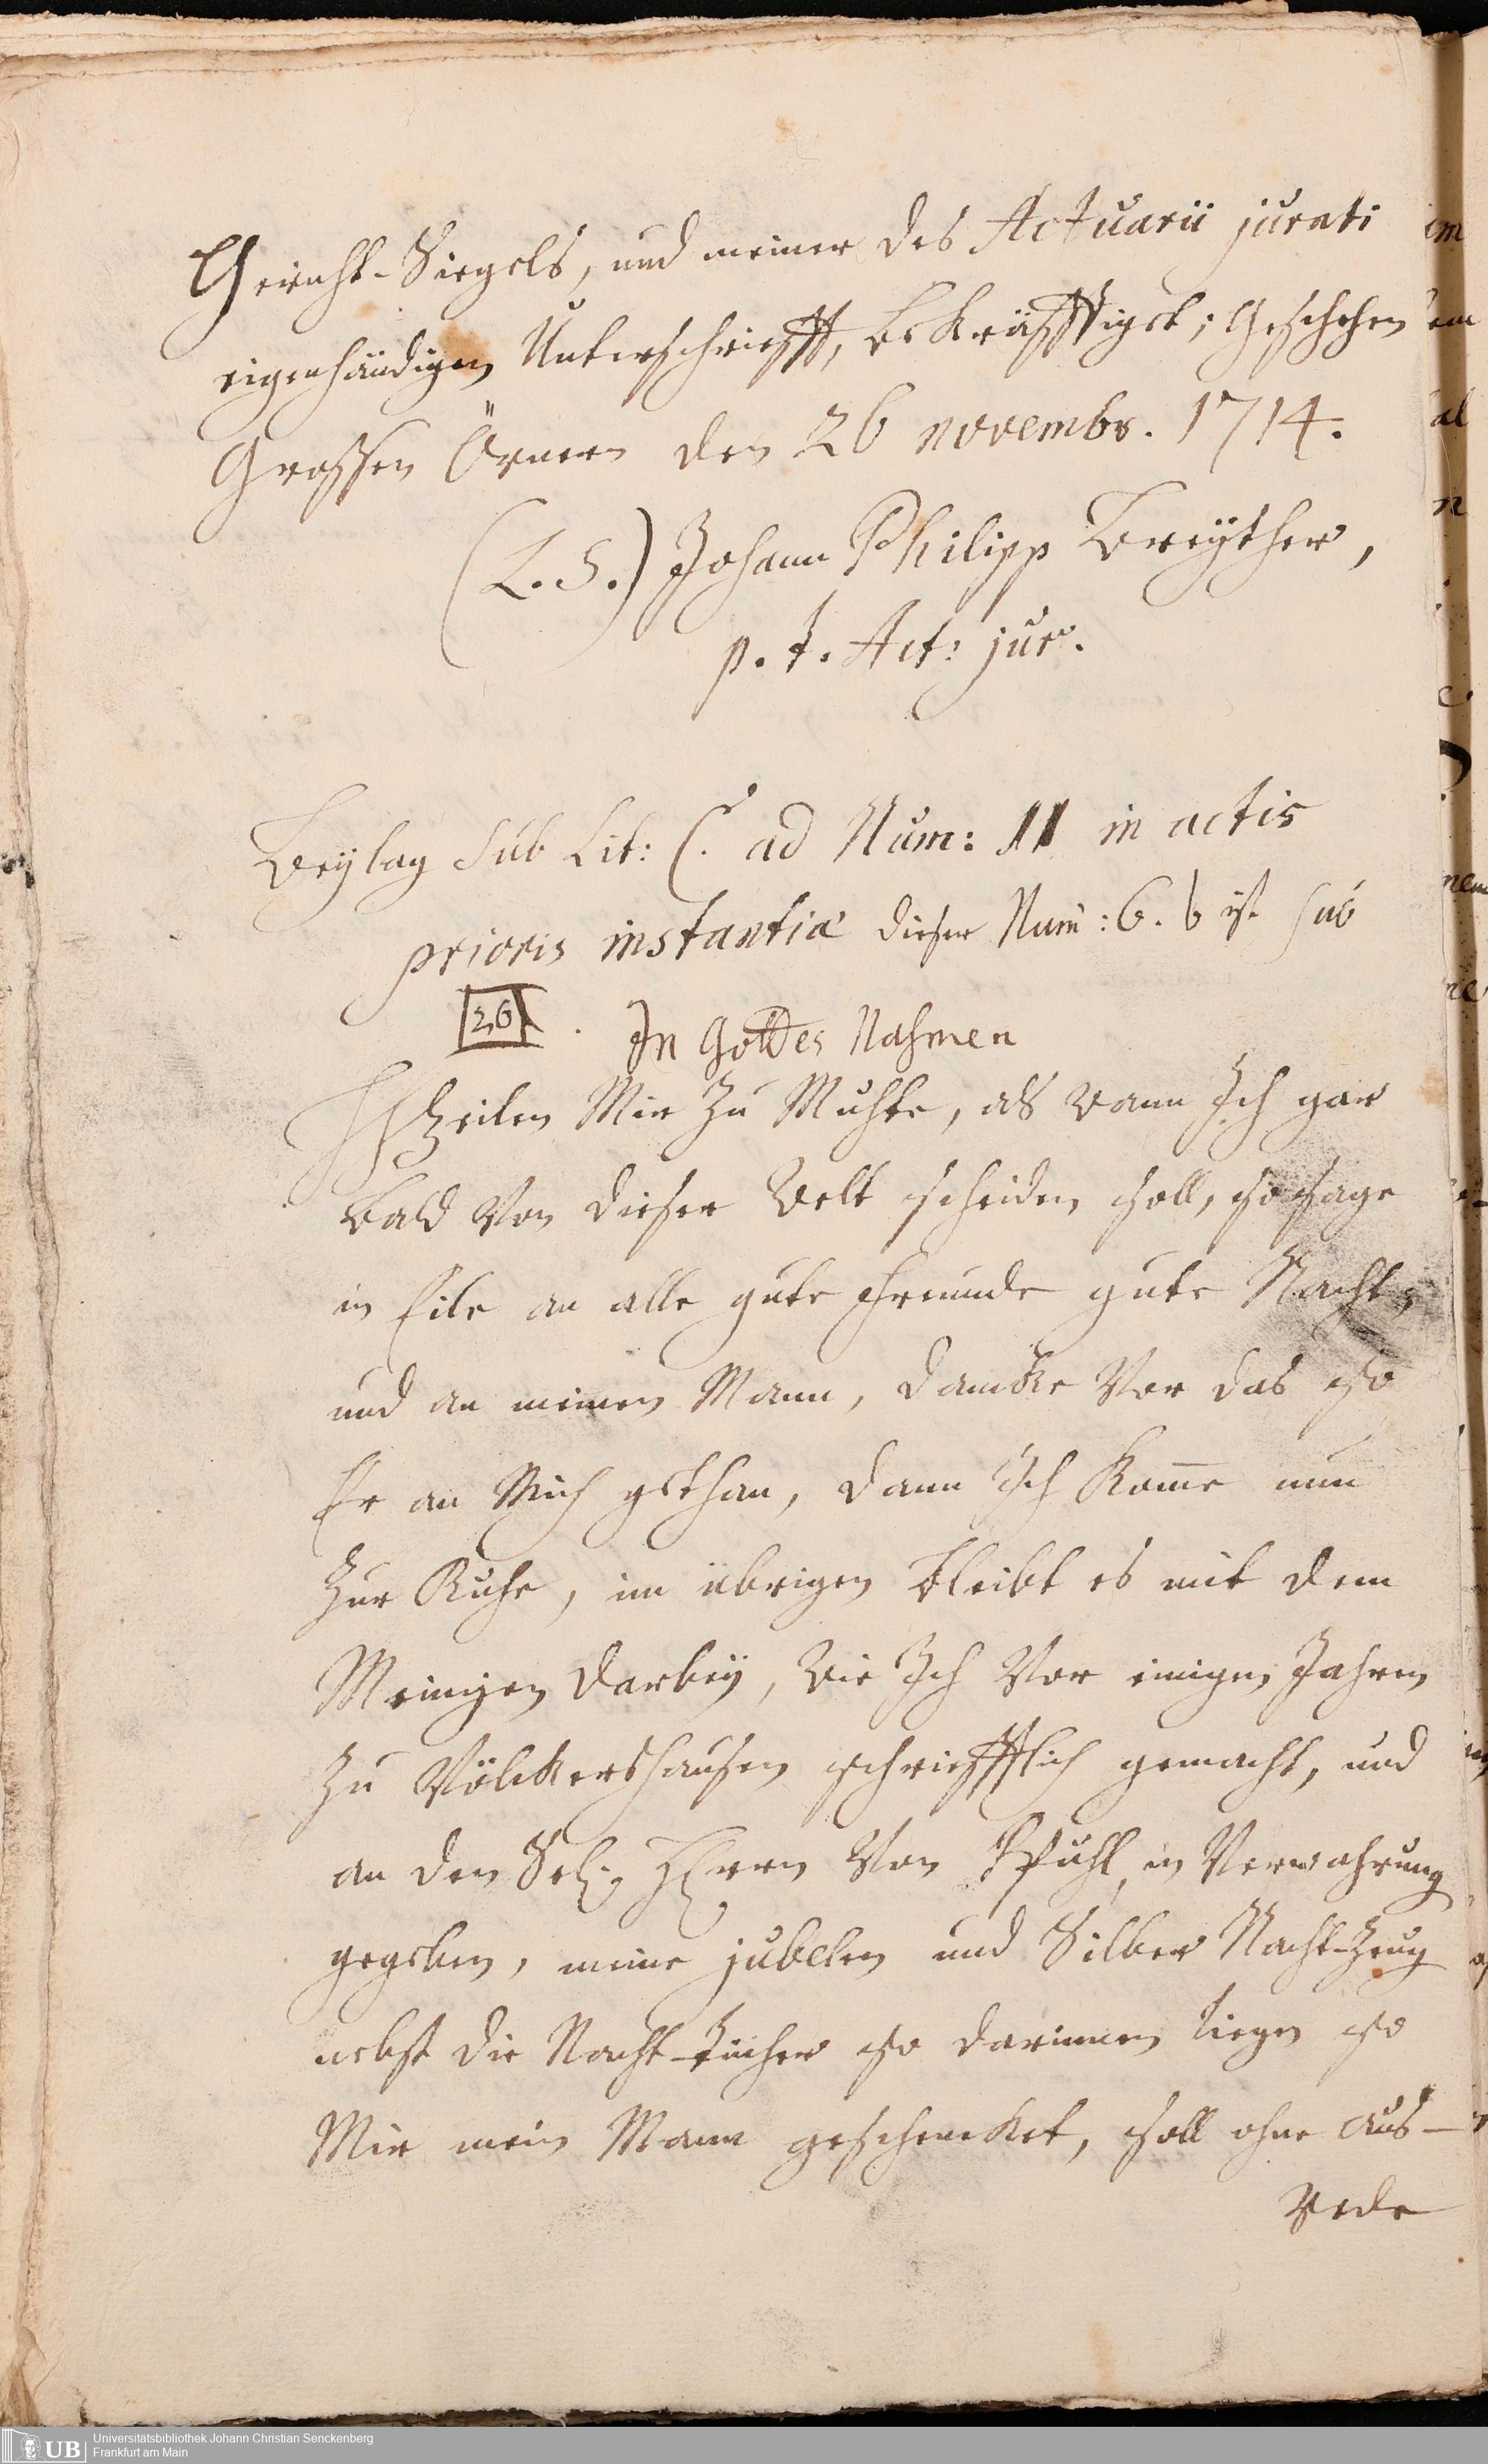 Gericht-Siegels, und meiner des Actuarii jurati
eigenhändigen Unterschriefft, bekräfftiget; Geschehen
Grossen Örnern den 26 novembr. 1714.
(L.S.) Johann Philipp Breyther,
p. t. Act: jur.
Beylag sub Lit: C. ad Num: 11 in actis
prioris instantiæ dieser Num: 6. b ist sub
26. In Gottes Nahmen
Weilen Mir zu Muhte, als wann Ich gar
bald von dieser Welt scheiden soll, so sage
in Eile an alle gute Freunde gute Nacht,
und an meinen Mann, dancke vor das so
Er an Mich gethan, dann Ich kom̄e nun
zur Ruhe, im übrigen bleibt es mit dem
Meinigen darbey, wie Ich vor einigen Jahren
zu Völckershausen schriefftlich gemacht, und
an den Sel: Herrn von Pfuhl, in Verwahrung
gegeben, meine jubelen und Silber Nacht-Zeug
nebst die Nacht-Tücher so darinnen liegen so
Mir mein Mann geschencket, soll ohne Aus-
rede
Universitätsbibliothek Johann Christian Senckenberg
Frankfurt am Main
UB